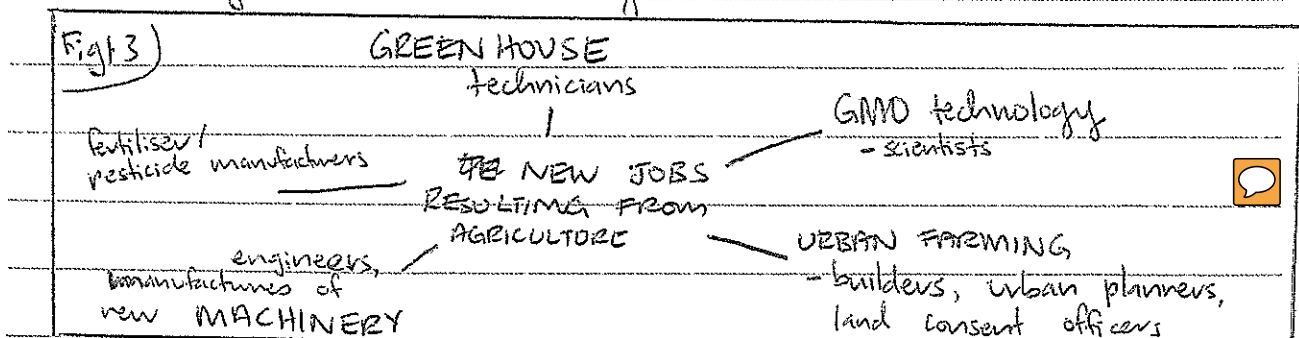 Fig 13)
GREEN HOUSE
technicians
GMO technology
- scientists
fertiliser/
pesticide manufacturers
NEW JOBS
RESULTING FROM
AGRICULTURE
engineers,
manufactures of
new MACHINERY
URBAN FARMING
- builders, urban planners,
land consent officers